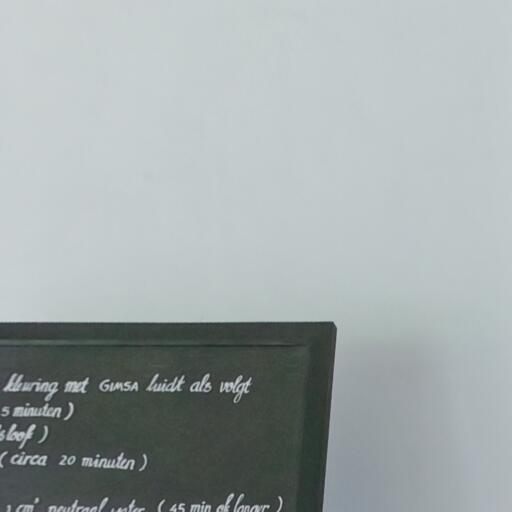 kleuring met GIMSA luidt als volgt
5 minuten)
(circa 20 minuten)
1 cm³ neutraal water (45 min of langer)